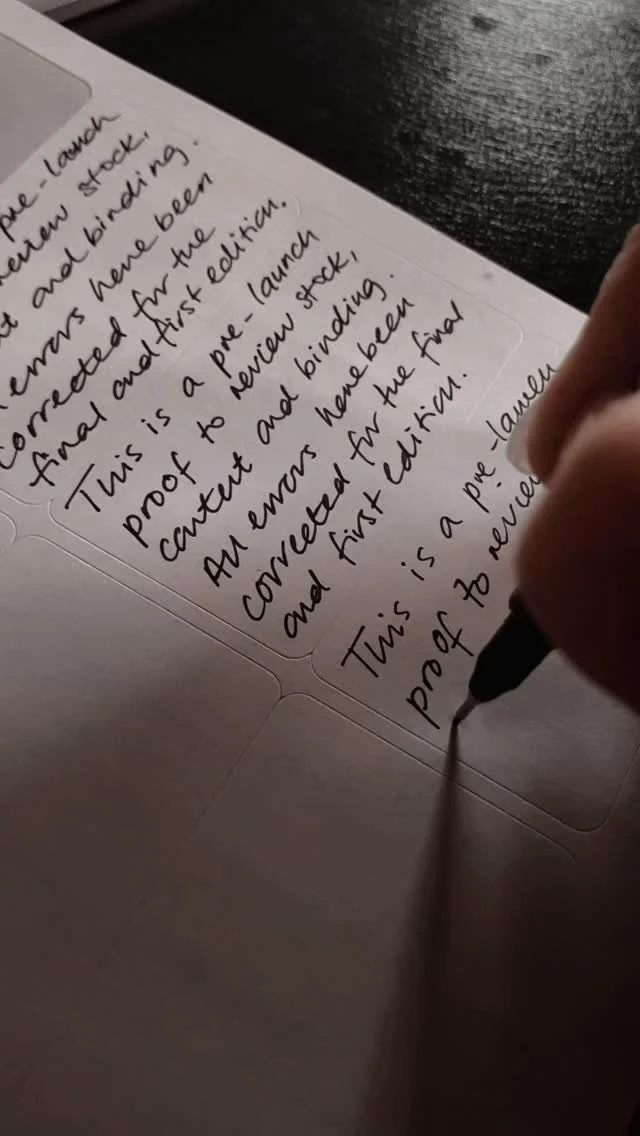 pre-launch
review stock,
and binding.
errors have been
corrected for the
final and first edition.
This is a pre-launch
proof to review stock,
content and binding.
All errors have been
corrected for the final
and first edition.
This is a pre-launch
proof to review